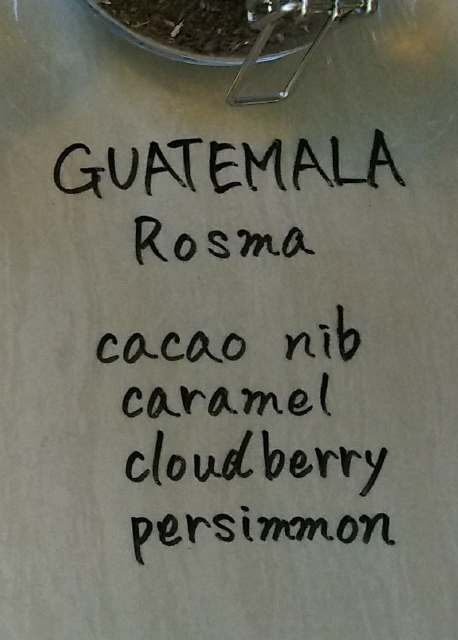 GUATEMALA
Rosma
cacao nib
caramel
cloudberry
persimmon